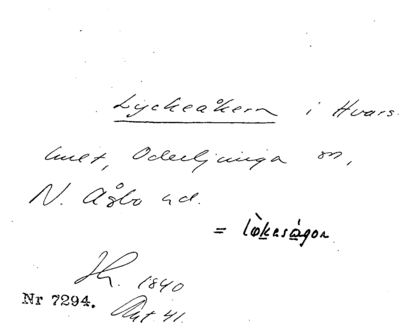 Lyckeåkern i Hvars-
hult, Oderljunga sn,
N. Åsbo hd.
= lø̀kesågon
Hr. 1840
Nr 7294. Akt 41.